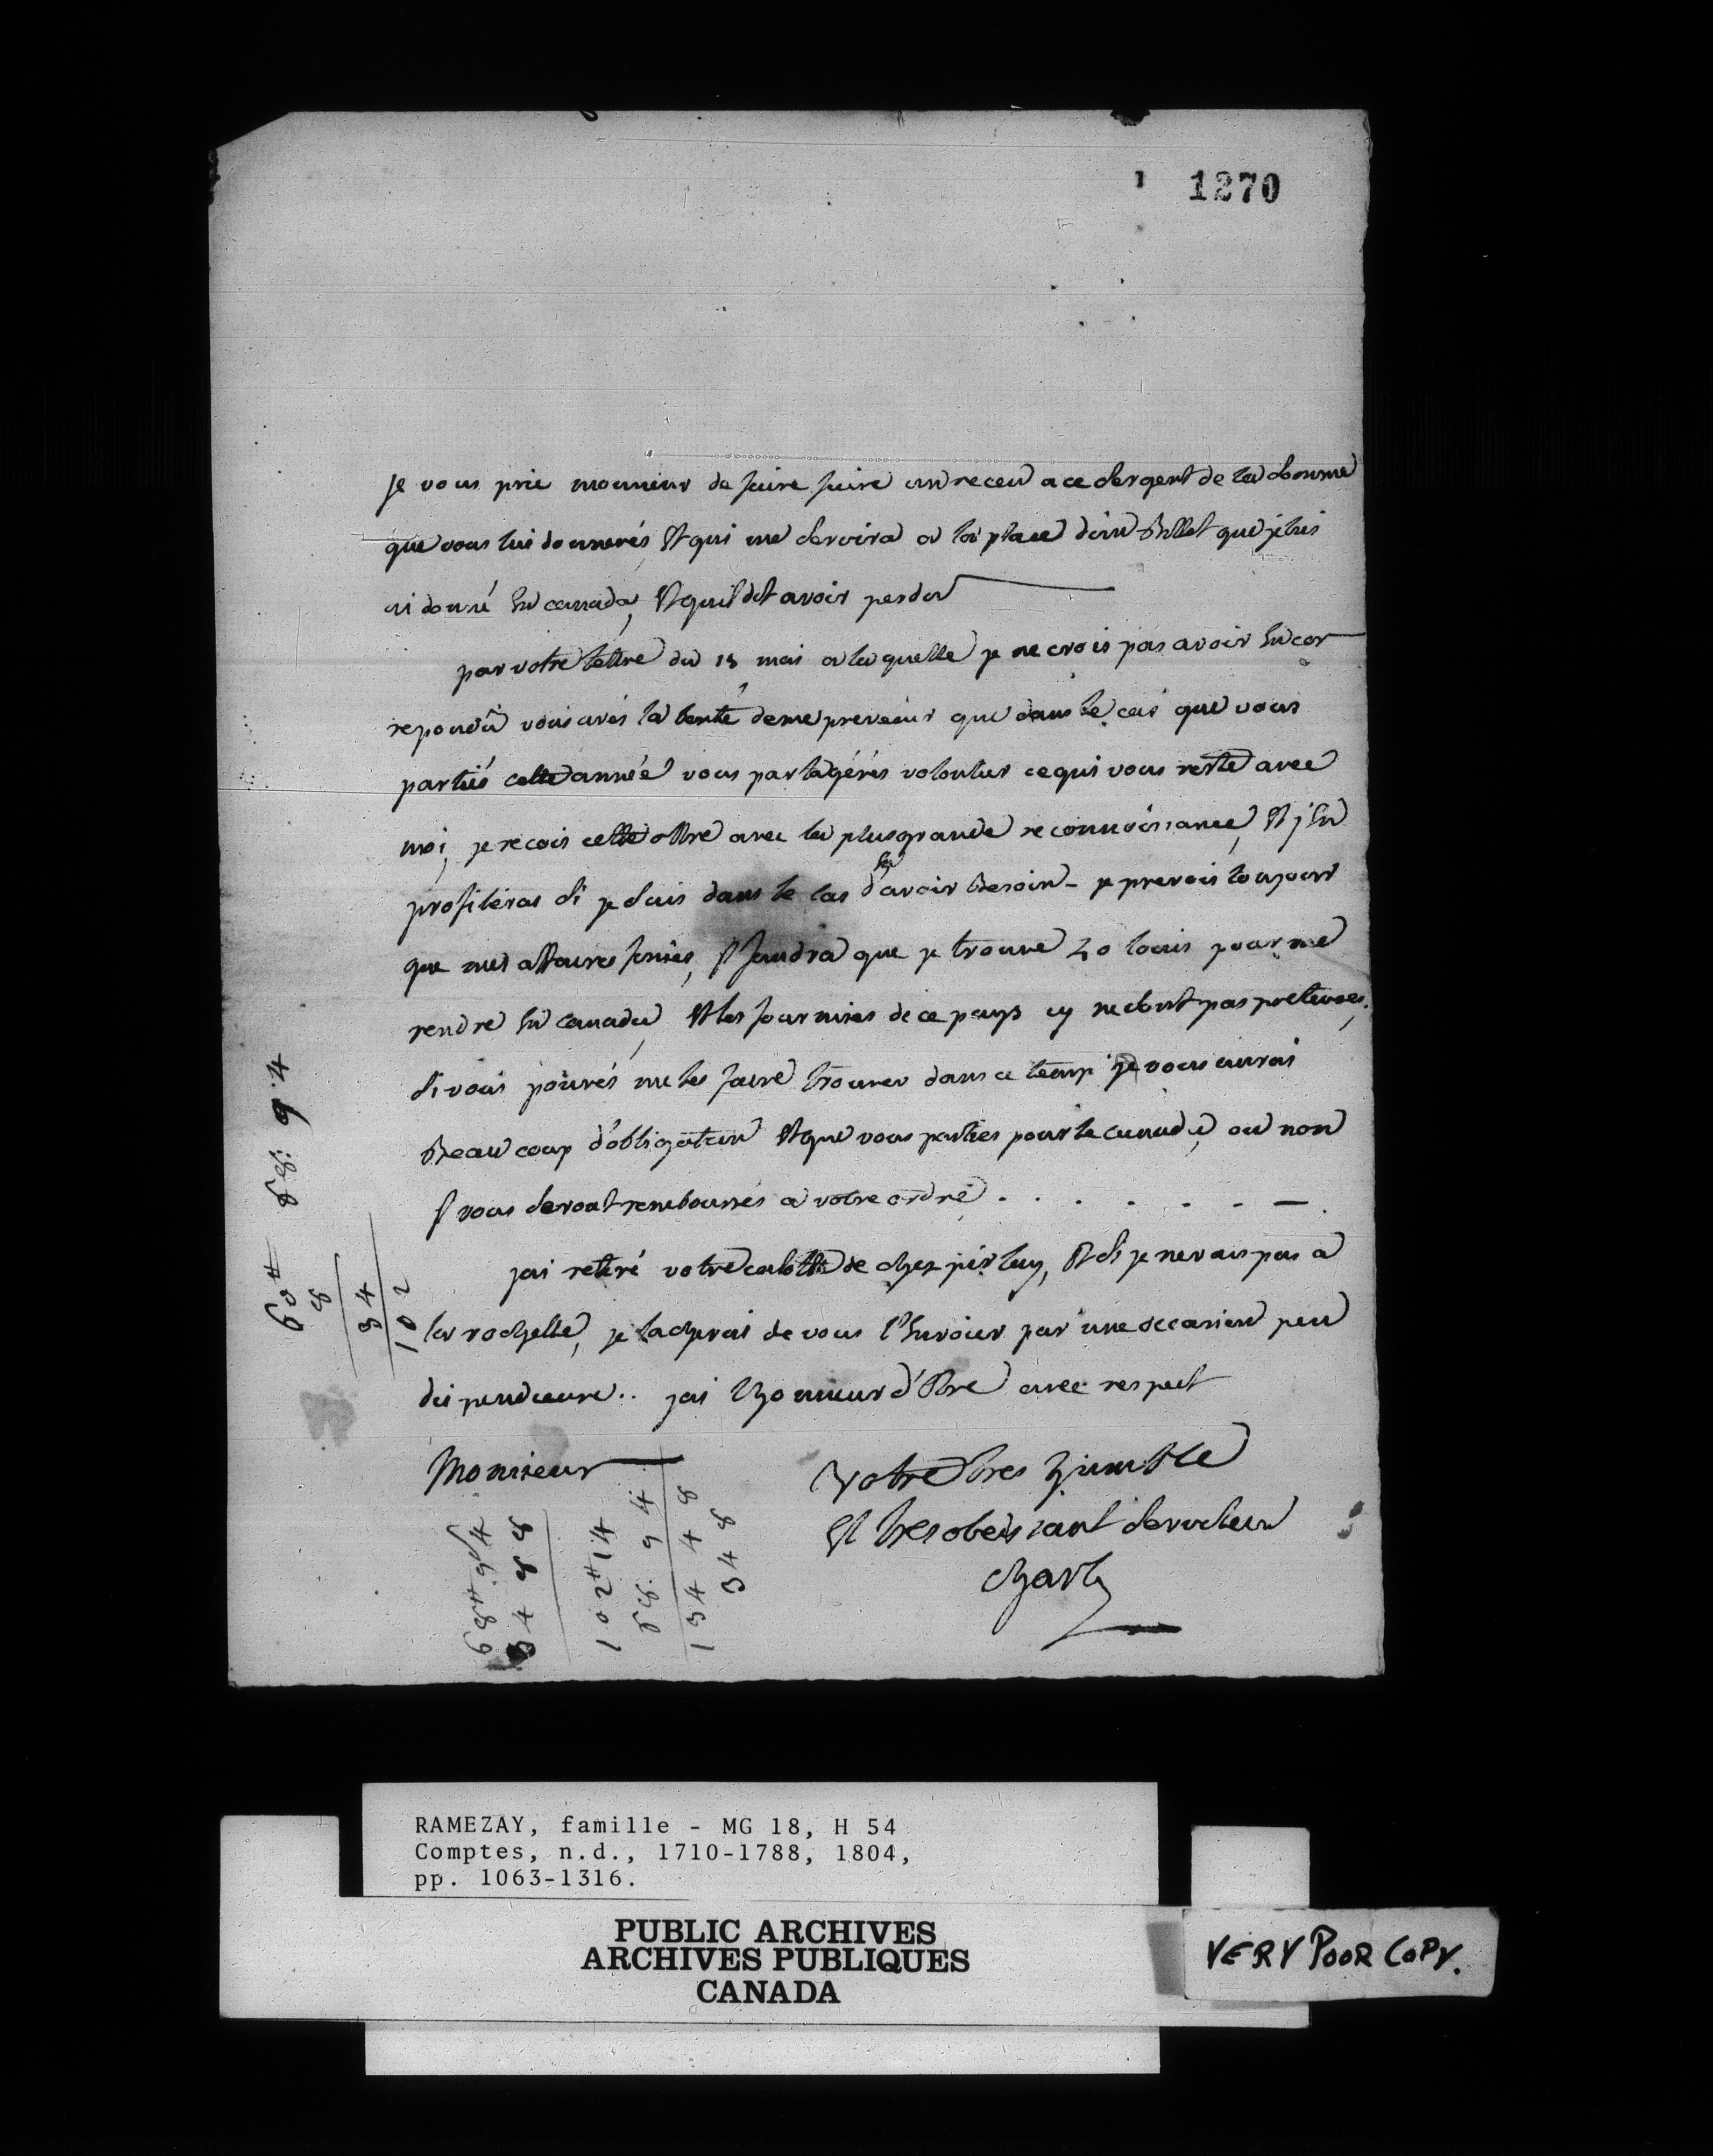 1270
je vous prie monsieur de faire faire un receu a ce sergent de la somme
que vous lui donnerés, et qui me servira a la place d'un billet que je luis
ai donné en canada, et quil dit avoir perdu
par votre lettre du 15 mai a la quelle je ne crois pas avoir encor
repondû vous avés la bonté de me prevenir que dans le cas que vous
partiés cette année vous partagérés volontier ce qui vous reste avec
moi, je recois cette offre avec la plus grande reconnoissance, et j'en
profiteras si je suis dans le cas d'en avoir besoin - je prevois toujours
que mes affaires finies, il faudra que je trouve 20 louis pour me
rendre en canada, et les fourmies de ce pays cy ne sont pas preteuses,
si vous pouvés me les faire trouver dans ce temp je vous aurai
beaucoup d'obligation et que vous parties pour le canada, ou non
il vous seront remboursés a votre ordre . . . . . . —
jai retiré votre calotte de chez, et si je ne vais pas a
la rochelle, je tacherai de vous l'envoier par une occasion peu
dispendieuse .. jai l'honneur d'etre avec respect
Monsieur
votre tres humble
et tres obeissant serviteur
charly
34
102
RAMEZAY, famille - MG 18, H 54
Comptes, n.d., 1710-1788, 1804,
pp. 1063-1316.
PUBLIC ARCHIVES
ARCHIVES PUBLIQUES
CANADA
VERY POOR COPY.